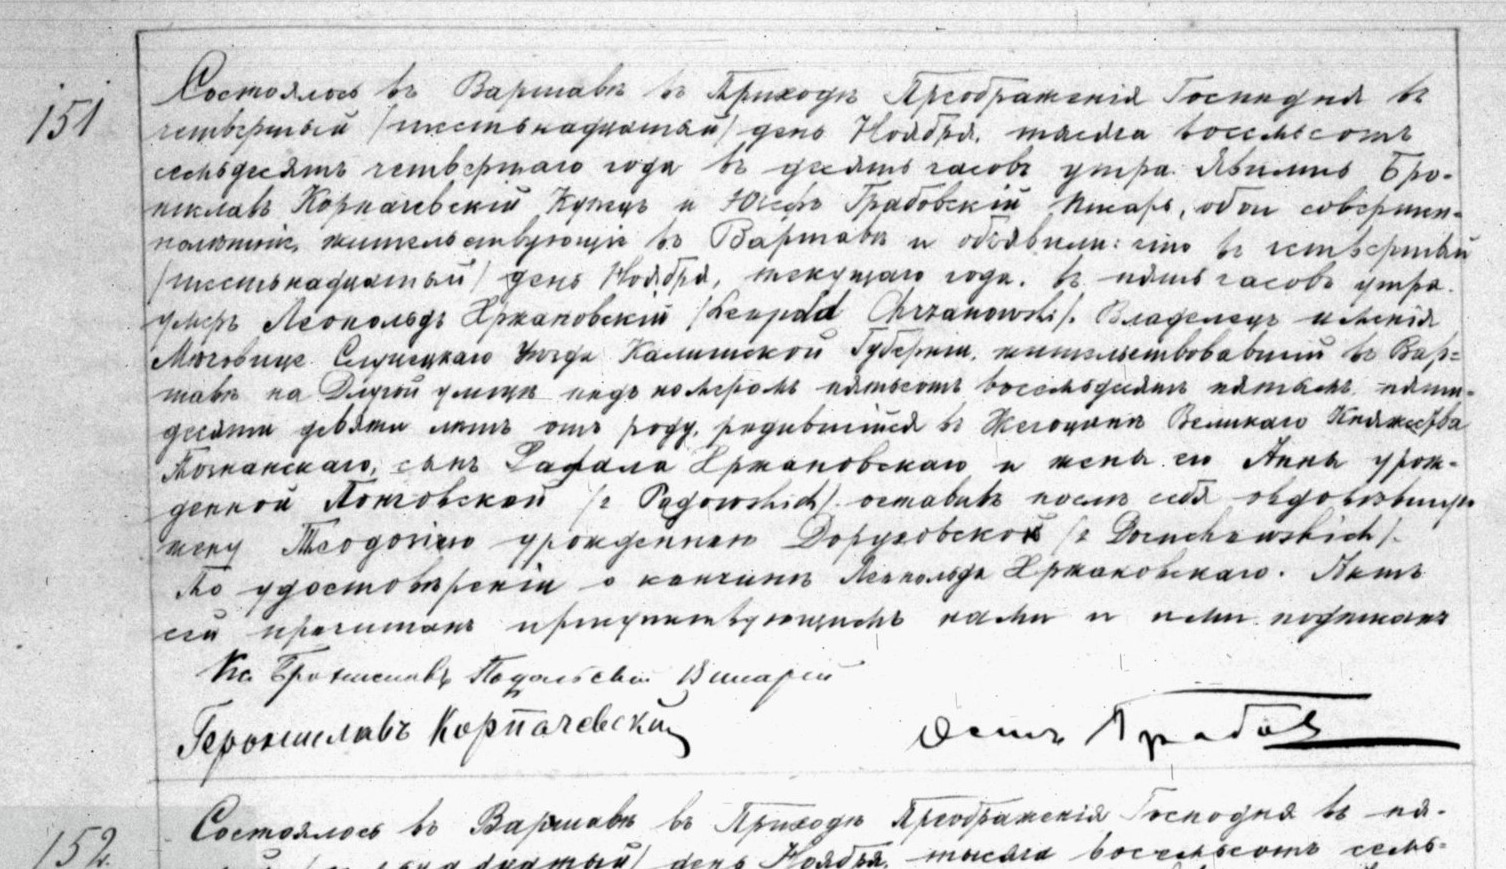 151
Состоялось въ Варшавѣ въ Приходѣ Преображенія Господня въ
четвертый /шестьнадцатый/ день Ноября, тысяча восемьсотъ
семьдесятъ четвертаго года въ десять часовъ утра. Явились Бро-
ниславъ Корпачевскій Купецъ и Юсефъ Грабовскій Писарь, обои совершен-
нолѣтніе, жительствующіе въ Варшавѣ и объявили: что въ четвертый
/шестьнадцатый/ день Ноября, текущаго года, въ пять часовъ утра
умеръ Леопольдъ Хржановскій /Leopold Chrzanowski/. Владелецъ имѣнія
Слупецкаго Уѣзда Калишской Губерніи, жительствовавшій въ Вар-
шавѣ на Длугой улицѣ подъ номеромъ пятьсотъ восемьдесятъ пятымъ, пяти-
десяти девяти лѣтъ отъ роду, родившійся въ Великаго Княжества
Познанскаго, сынъ Рафала Хржановскаго и жены его Анны урож-
денной /z оставивъ послѣ себя овдовѣвшую
жену Теодозію урожденную Доруховской /z Doruchowskich/.
По удостовѣреніи о кончинѣ Леопольда Хржановскаго. Актъ
сей прочитанъ присутствующимъ нами и ими подписанъ
Кс. Брониславъ Подольскій Викарій
Герониславъ Корпачевскій
Осипъ Грабов
152.
Состоялось въ Варшавѣ въ Приходѣ Преображенія Господня въ пя-
день Ноября, тысяча восемьсотъ семь-